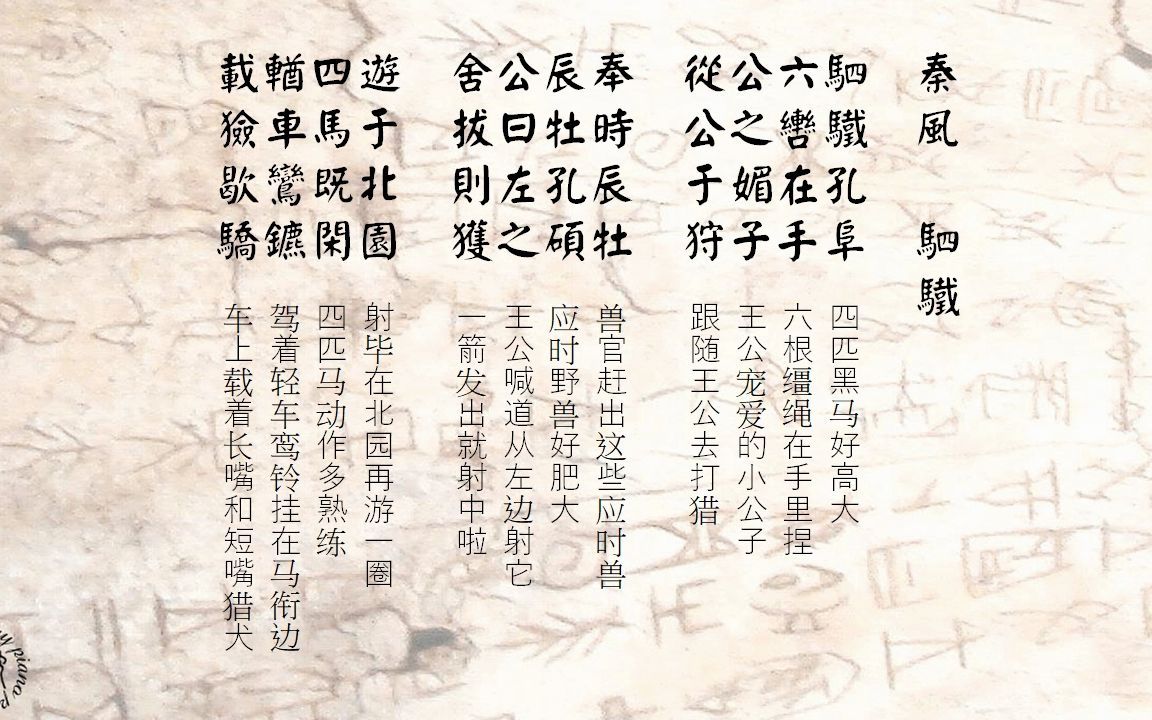 秦風 駟驖
駟驖孔阜
六轡在手
公之媚子
從公于狩
四匹黑马好高大
六根缰绳在手里捏
王公宠爱的小公子
跟随王公去打猎
奉時辰牡
辰牡孔碩
公曰左之
舍拔則獲
兽官赶出这些应时兽
应时野兽好肥大
王公喊道从左边射它
一箭发出就射中啦
遊于北園
四馬既閑
輶車鸞鑣
載獫歇驕
射毕在北园再游一圈
四匹马动作多熟练
驾着轻车鸾铃挂在马衔边
车上载着长嘴和短嘴猎犬
piano